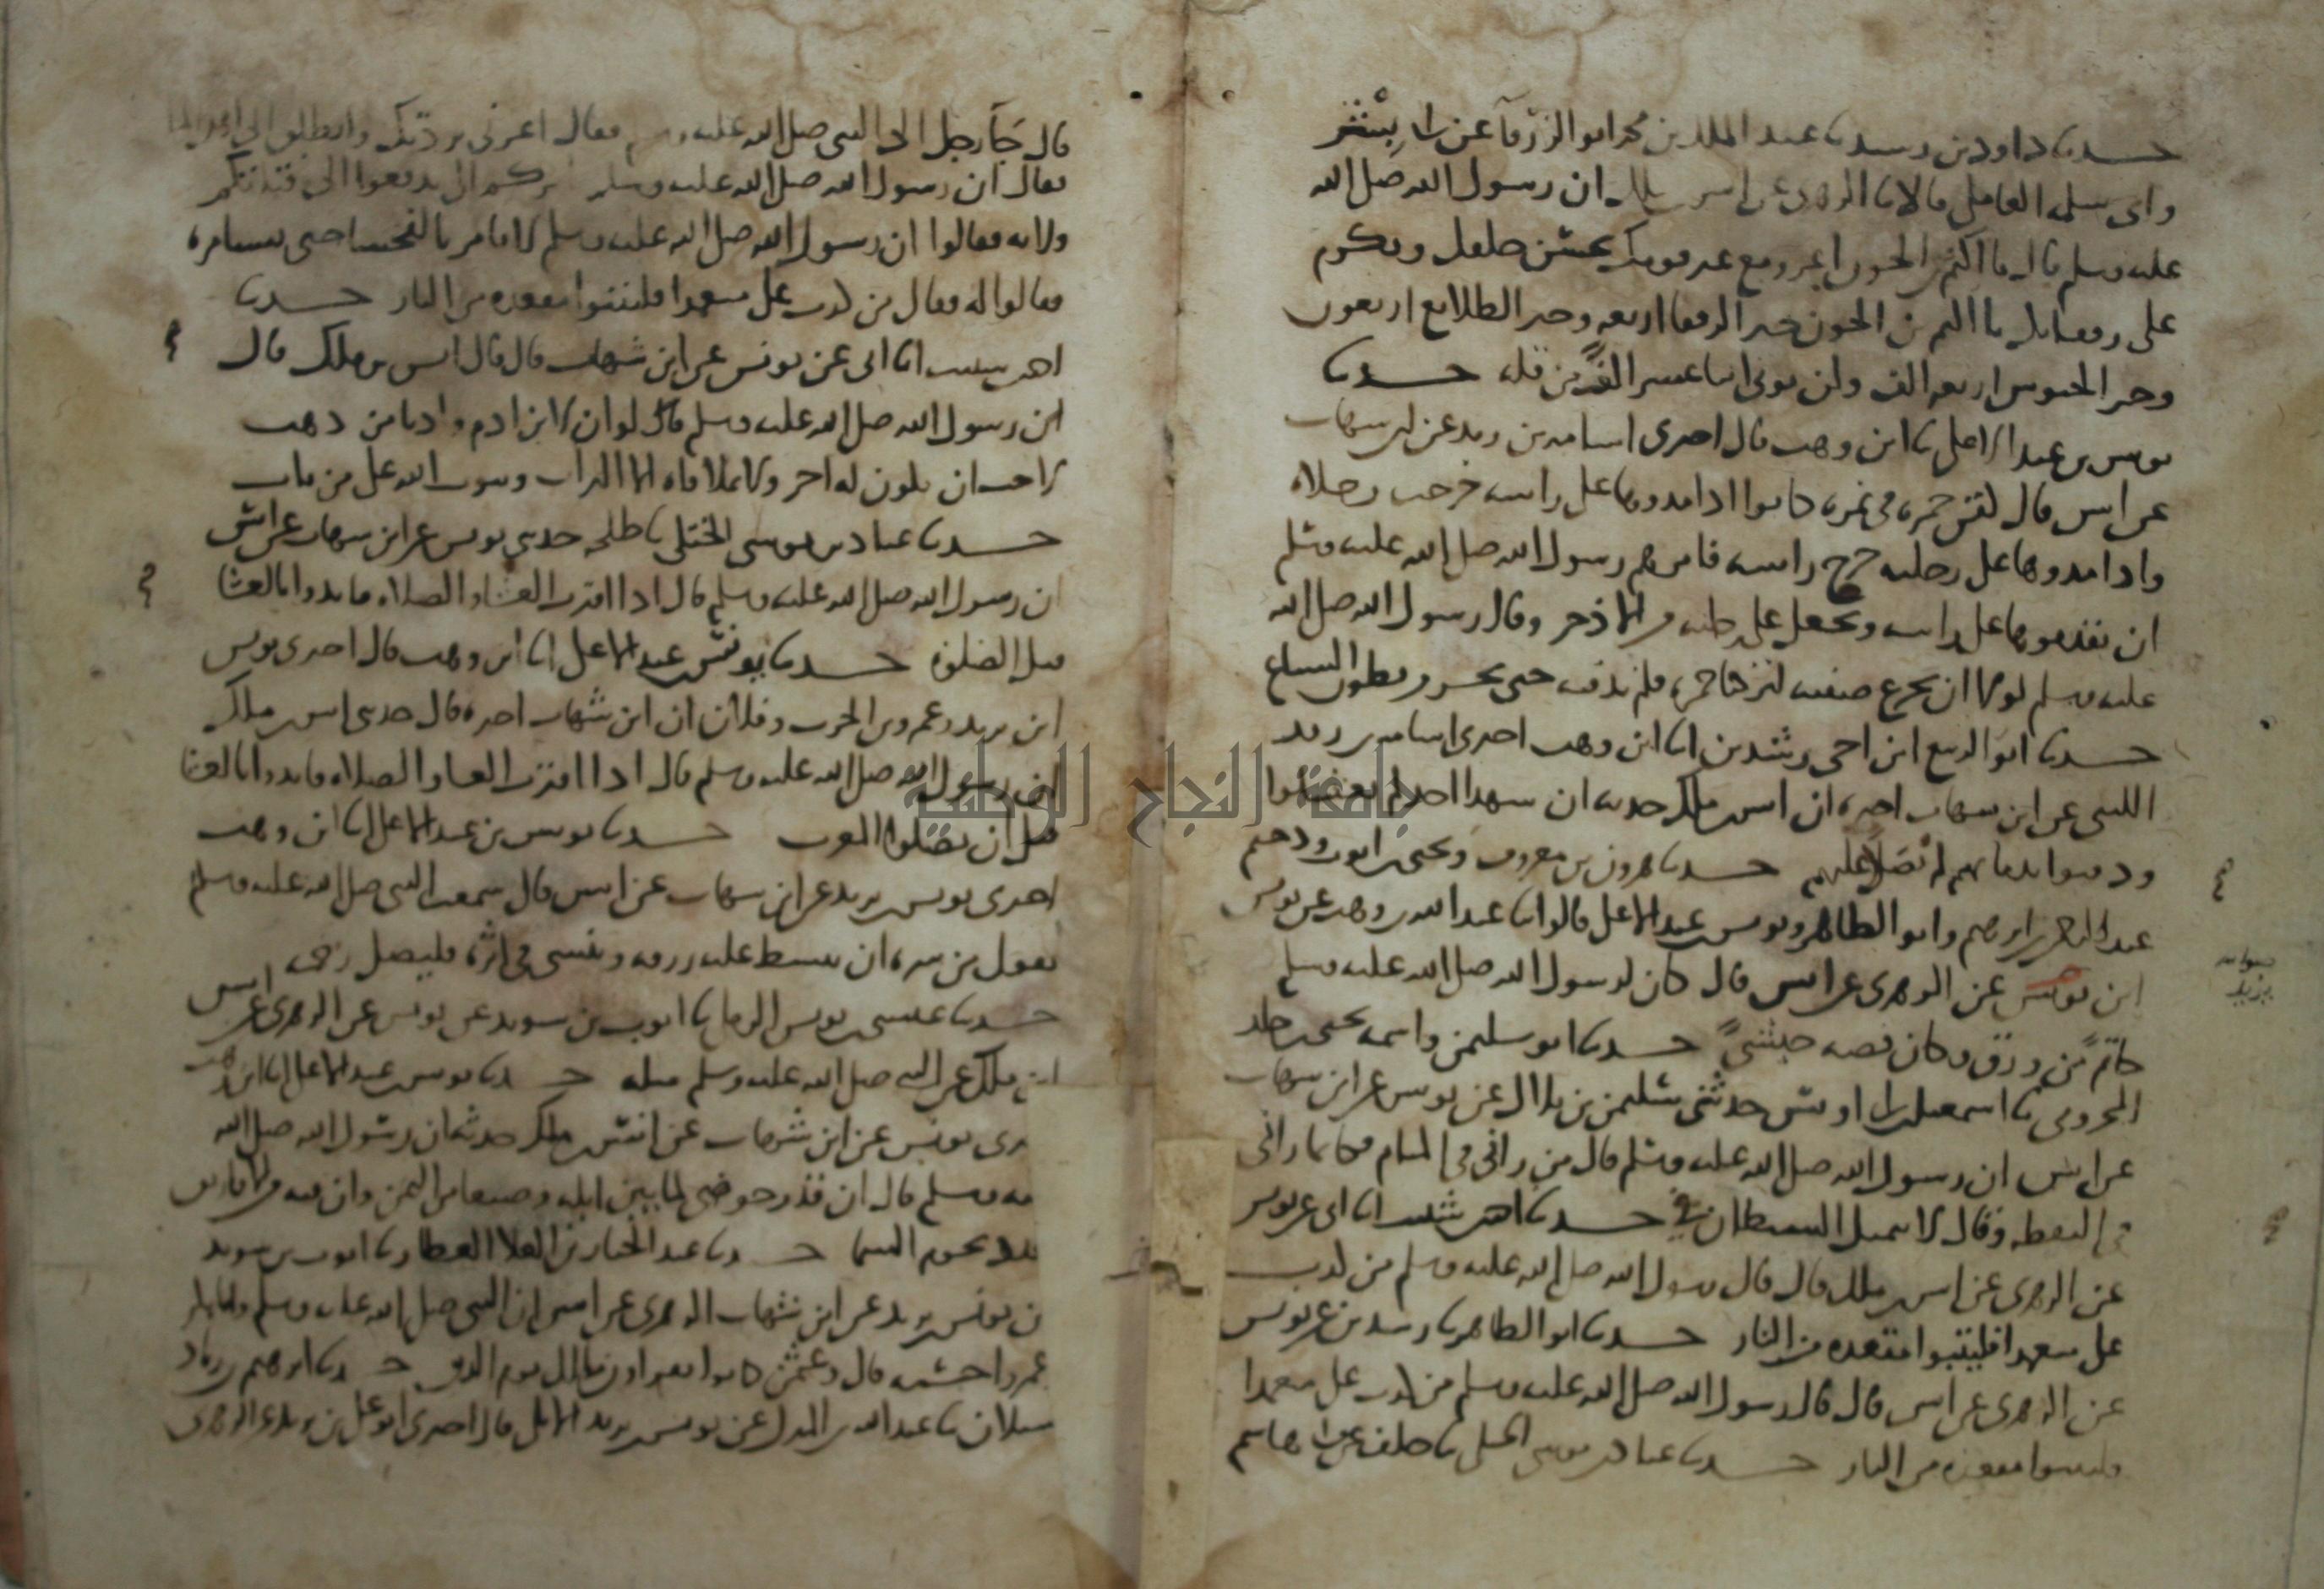 حدثنا داود بن رشيد نا عبد الملك بن محمد ابو الزرقا عن ابي بشر
وابي سلمه العاملي قالا نا الزهري عن انس بن ملك ان رسول الله صلى الله
عليه وسلم قال يا اكثم بن الجون اغز مع غير قومك يحسن خلقك وتكرم
على رفقائك يا اكثم بن الجون خير الرفقا اربعه وخير الطلائع اربعون
وخير الجيوش اربعه الف ولن يؤتى اثنا عشر الفا من قله حدثنا
يونس بن عبد الاعلى نا ابن وهب قال اخبرني اسامه بن زيد عن ابن شهاب
عن انس قال كفن حمزه في نمره كانوا اذا مدوها على راسه خرجت رجلاه
واذا مدوها على رجليه خرج راسه فامرهم رسول الله صلى الله عليه وسلم
ان يمدوها على راسه ويجعل على رجليه من الاذخر وقال رسول الله صلى الله
عليه وسلم لولا ان تجزع صفيه لتركنا حمزه فلم ندفنه حتى يحشر من بطون السباع
حدثنا ابو الربيع ابن اخي رشدين انا ابن وهب اخبرني اسامه بن زيد
الليثي عن ابن شهاب اخبره ان انس بن ملك حدثه ان شهدا احد لم يغسلوا
ودفنوا بدمائهم لم يصل عليهم حدثنا هرون بن معروف ويحيى بن ايوب ودحيم
عبد الرحمن بن ابرهيم وابو الطاهر ويونس بن عبد الاعلى قالوا نا عبد الله بن وهب عن يونس
ابن يونس عن الزهري عن انس قال كان لرسول الله صلى الله عليه وسلم
صوابه
يزيد
خاتم من ورق وكان فصه حبشي حدثنا ابو سليمن واسمه يحيى بن خلد
المخزومي نا اسمعيل بن ابي اويس حدثني سليمن بن بلال عن يونس عن ابن شهاب
عن انس ان رسول الله صلى الله عليه وسلم قال من راني في المنام فكانما راني
في اليقظه وقال لا يتمثل الشيطان بي حدثنا احمد بن شبيب انا ابي عن يونس
عن الزهري عن انس بن ملك قال قال رسول الله صلى الله عليه وسلم من كذب
علي متعمدا فليتبوا مقعده من النار حدثنا ابو الطاهر نا رشدين عن يونس
عن الزهري عن انس قال قال رسول الله صلى الله عليه وسلم من كذب علي متعمدا
فليتبوا مقعده من النار حدثنا عباد بن موسى الختلي نا خلف عن ابي هاشم
قال جا رجل الى النبي صلى الله عليه وسلم فقال اعرني بردتيك وانطلق الى
فقال ان رسول الله صلى الله عليه وسلم
ولانه فقالوا ان رسول الله صلى الله عليه وسلم لا يامر بالفحشا حتى نستامره
فقالوا له فقال من كذب علي متعمدا فليتبوا مقعده من النار حدثنا
احمد بن شبيب انا ابي عن يونس عن ابن شهاب قال قال انس بن ملك قال
ان رسول الله صلى الله عليه وسلم قال لو ان لابن ادم واديا من ذهب
لاحب ان يكون له اخر ولا يملا فاه الا التراب ويتوب الله على من تاب
حدثنا عباد بن موسى الختلي نا طلحه حدثني يونس عن ابن شهاب عن انس
ان رسول الله صلى الله عليه وسلم قال اذا اقترب العشا والصلاه فابدوا بالعشا
قبل الصلوه حدثنا يونس بن عبد الاعلى انا ابن وهب قال اخبرني يونس
ابن يزيد وعمرو بن الحرث وفلان ان ابن شهاب اخبره قال حدثني انس بن ملك
ان رسول الله صلى الله عليه وسلم قال اذا اقترب العشا والصلاه فابدوا بالعشا
قبل ان تصلوا المغرب حدثنا يونس بن عبد الاعلى انا ابن وهب
اخبرني يونس بن يزيد عن ابن شهاب عن انس قال سمعت النبي صلى الله عليه وسلم
يقول من سره ان يبسط عليه رزقه وينسى في اثره فليصل رحمه
حدثنا عيسى بن يونس الرملي نا ايوب بن سويد عن يونس عن الزهري عن انس
ابن ملك عن النبي صلى الله عليه وسلم مثله حدثنا يونس بن عبد الاعلى انا ابن وهب
يونس عن ابن شهاب عن انس بن ملك حدثه ان رسول الله صلى الله
عليه وسلم قال ان قدر حوضي لما بين ايله وصنعا من اليمن وان فيه من الاباريق
كعدد نجوم السما حدثنا عبد الجبار بن العلا العطار نا ايوب بن سويد
عن يونس بن يزيد عن ابن شهاب الزهري عن انس ان النبي صلى الله عليه وسلم وابا بكر
وعمر واحسبه قال وعثمن كانوا يقراون مالك يوم الدين حدثنا ابرهيم بن زياد
سبلان نا عبد الله بن المبرك عن يونس بن يزيد الايلي قال اخبرني ابو علي بن يزيد عن الزهري
جامعة النجاح الوطنية